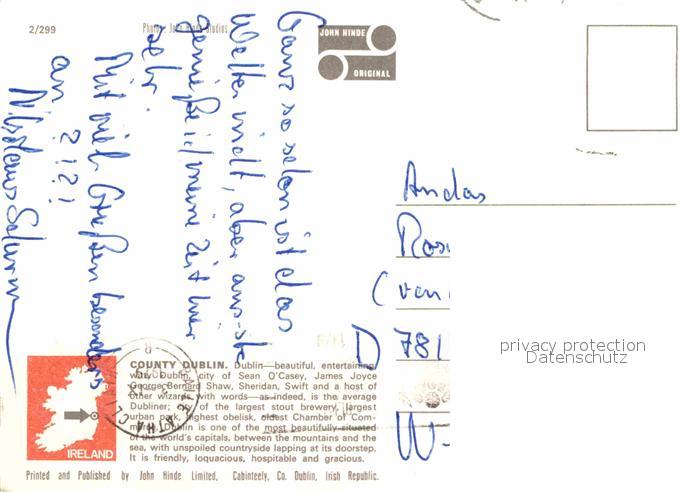 2/299
Photos: John Hinde Studios
JOHN HINDE
ORIGINAL
Ganz so schön ist das
Wetter nicht, aber ansonsten
genieße ich meine Zeit hier
sehr.
Mit viel Grüßen besonders
an ????
An das
(von
D 781
W-
privacy protection
Datenschutz
COUNTY DUBLIN. Dublin—beautiful, entertaining,
witty Dublin, city of Sean O'Casey, James Joyce
George Bernard Shaw, Sheridan, Swift and a host of
other wizards with words—as indeed, is the average
Dubliner; city of the largest stout brewery, largest
urban park, highest obelisk, oldest Chamber of Com-
merce, Dublin is one of the most beautifully-situated
of the world's capitals, between the mountains and the
sea, with unspoiled countryside lapping at its doorstep.
It is friendly, loquacious, hospitable and gracious.
IRELAND
Printed and Published by John Hinde Limited, Cabinteely, Co. Dublin, Irish Republic.